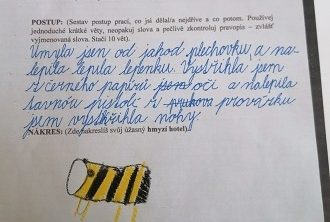 POSTUP: (Sestav postup prací, co jsi dělal/a nejdříve a co potom. Používej
jednoduché krátké věty, neopakuj slova a pečlivě zkontroluj pravopis – zvlášť
vyjmenovaná slova. Stačí 10 vět).
Umyla jsem od jahod plechovku, a na-
lepila lepila lepenku. Vystřihla jsem
z černého papíru jsem oči a nalepila
tavnou pistolí z provázku
jsem vystřihla nohy.
NÁKRES: (Zde nakreslíš svůj úžasný hmyzí hotel)